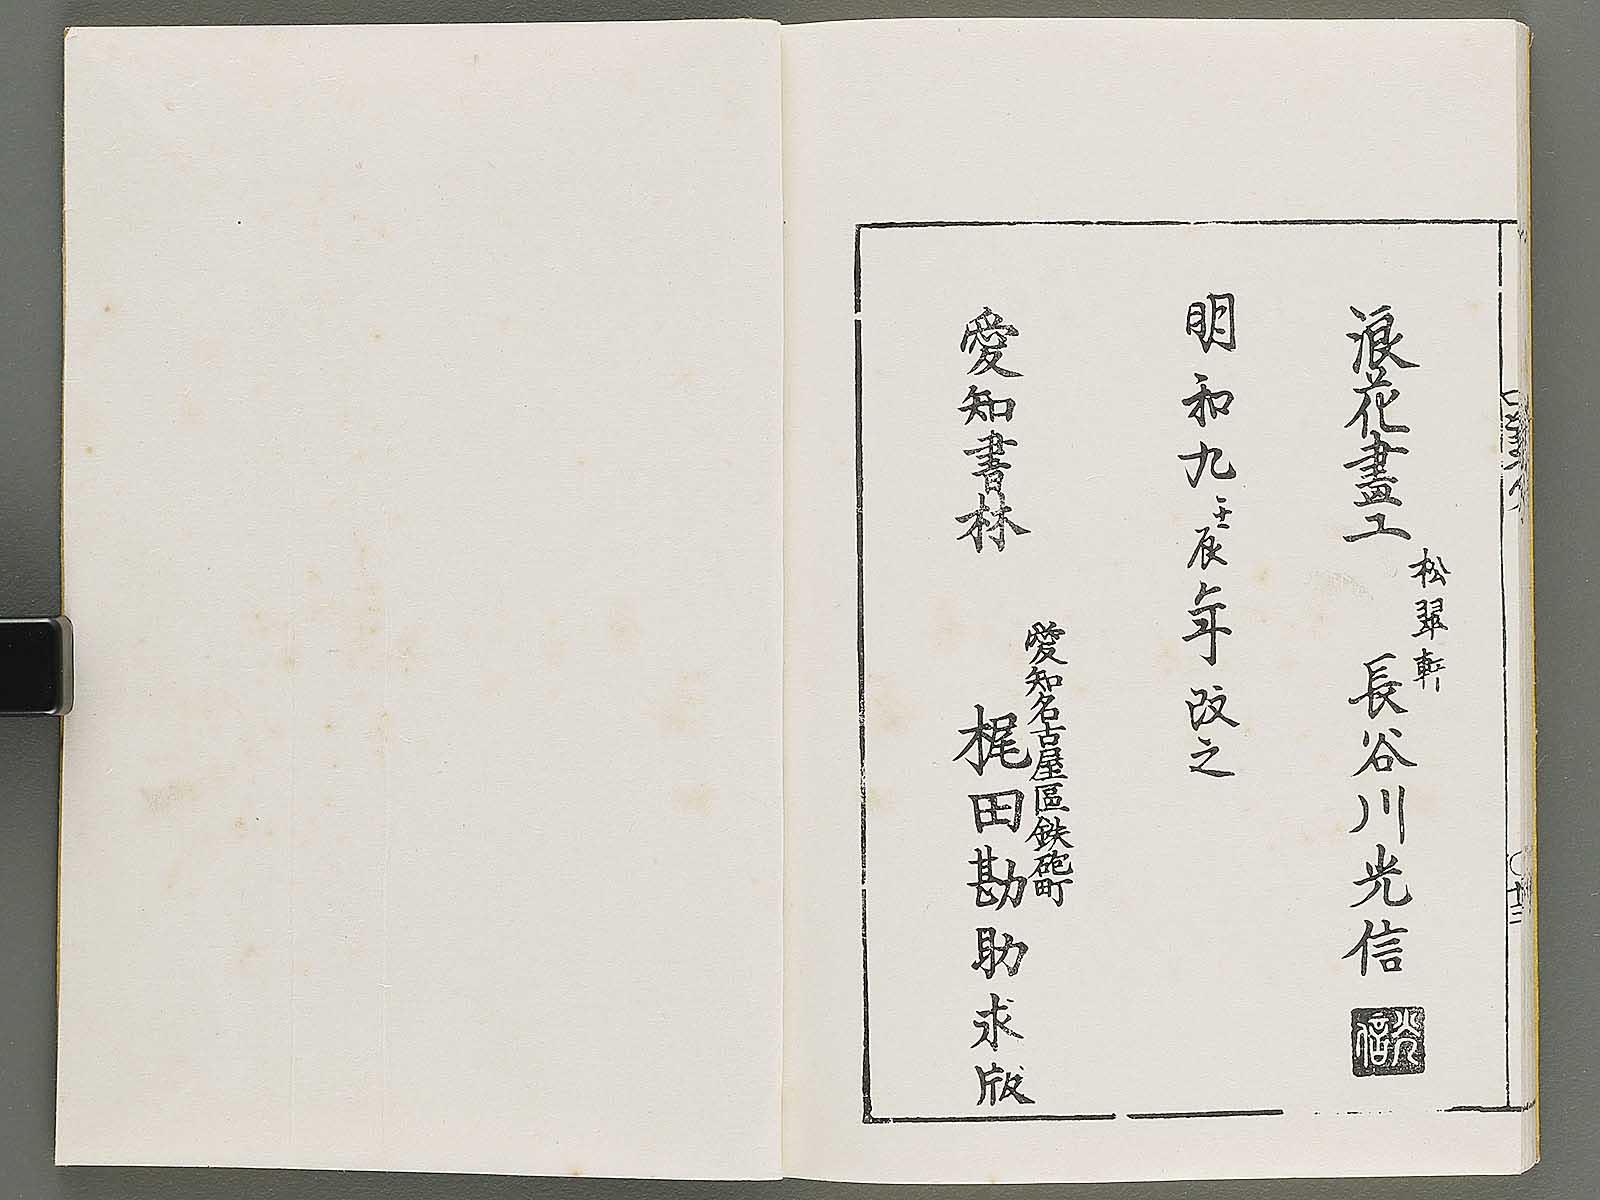 浪花畫工
松翠軒
長谷川光信
光信
明和九壬辰年改之
愛知書林
愛知名古屋區鉄砲町
梶田勘助求版